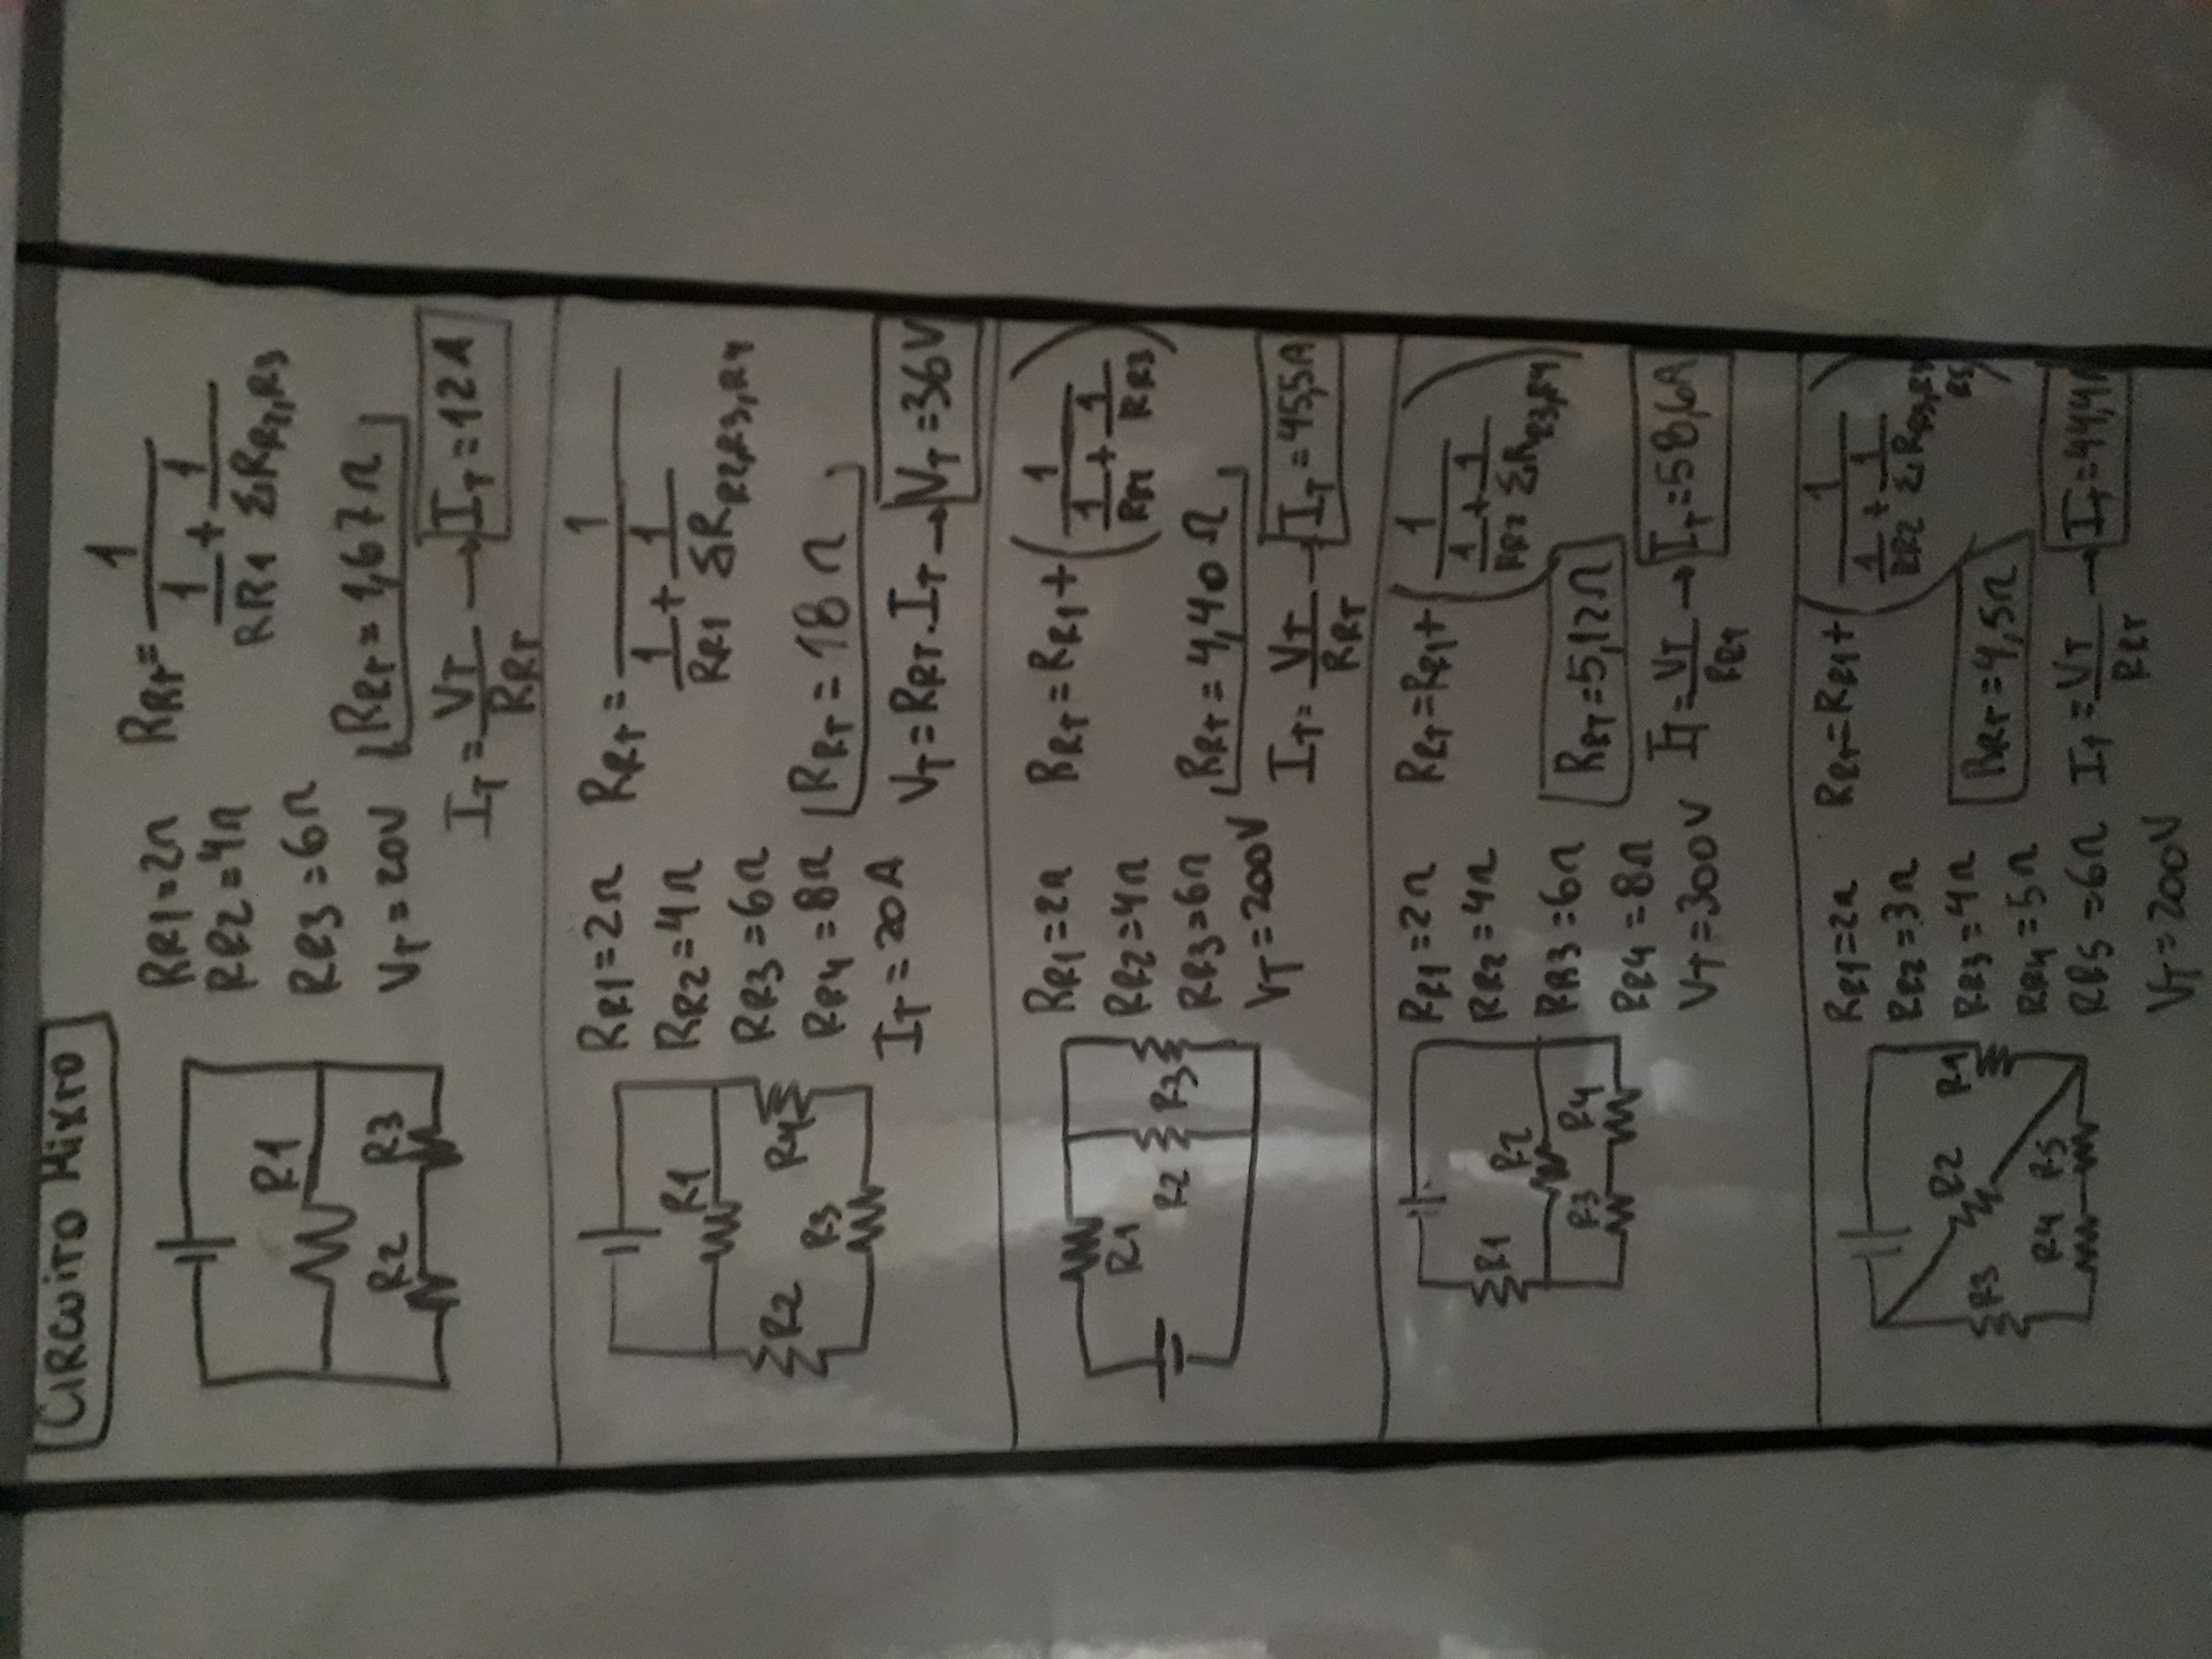 CIRCUITO MIXTO
R1
R2 R3
RR1=2Ω
RR2=4Ω
RR3=6Ω
VT=20V
RRT= 1 / (1/RR1 + 1/ΣRR2,R3)
RRT=1,67Ω
IT=VT/RRT → IT=12A
R1
R2 R4
R3
RR1=2Ω
RR2=4Ω
RR3=6Ω
RR4=8Ω
IT=20A
RRT= 1 / (1/RR1 + 1/ΣRR2,R3,R4)
RRT=18Ω
VT=RRT.IT → VT=36V
R1
R2 R3
RR1=2Ω
RR2=4Ω
RR3=6Ω
VT=200V
RRT=RR1+(1 / (1/RR2 + 1/RR3))
RRT=4,40Ω
IT=VT/RRT → IT=45,5A
R1
R2
R3 R4
RR1=2Ω
RR2=4Ω
RR3=6Ω
RR4=8Ω
VT=300V
RRT=RR1+(1 / (1/RR2 + 1/ΣRR3,R4))
RRT=5,12Ω
IT=VT/RRT → IT=58,6A
R2 R1
R3
R4 R5
RR1=2Ω
RR2=3Ω
RR3=4Ω
RR4=5Ω
RR5=6Ω
VT=200V
RRT=RR1+(1 / (1/RR2 + 1/ΣRR3,R4 R5))
RRT=4,5Ω
IT=VT/RRT → IT=44,4A